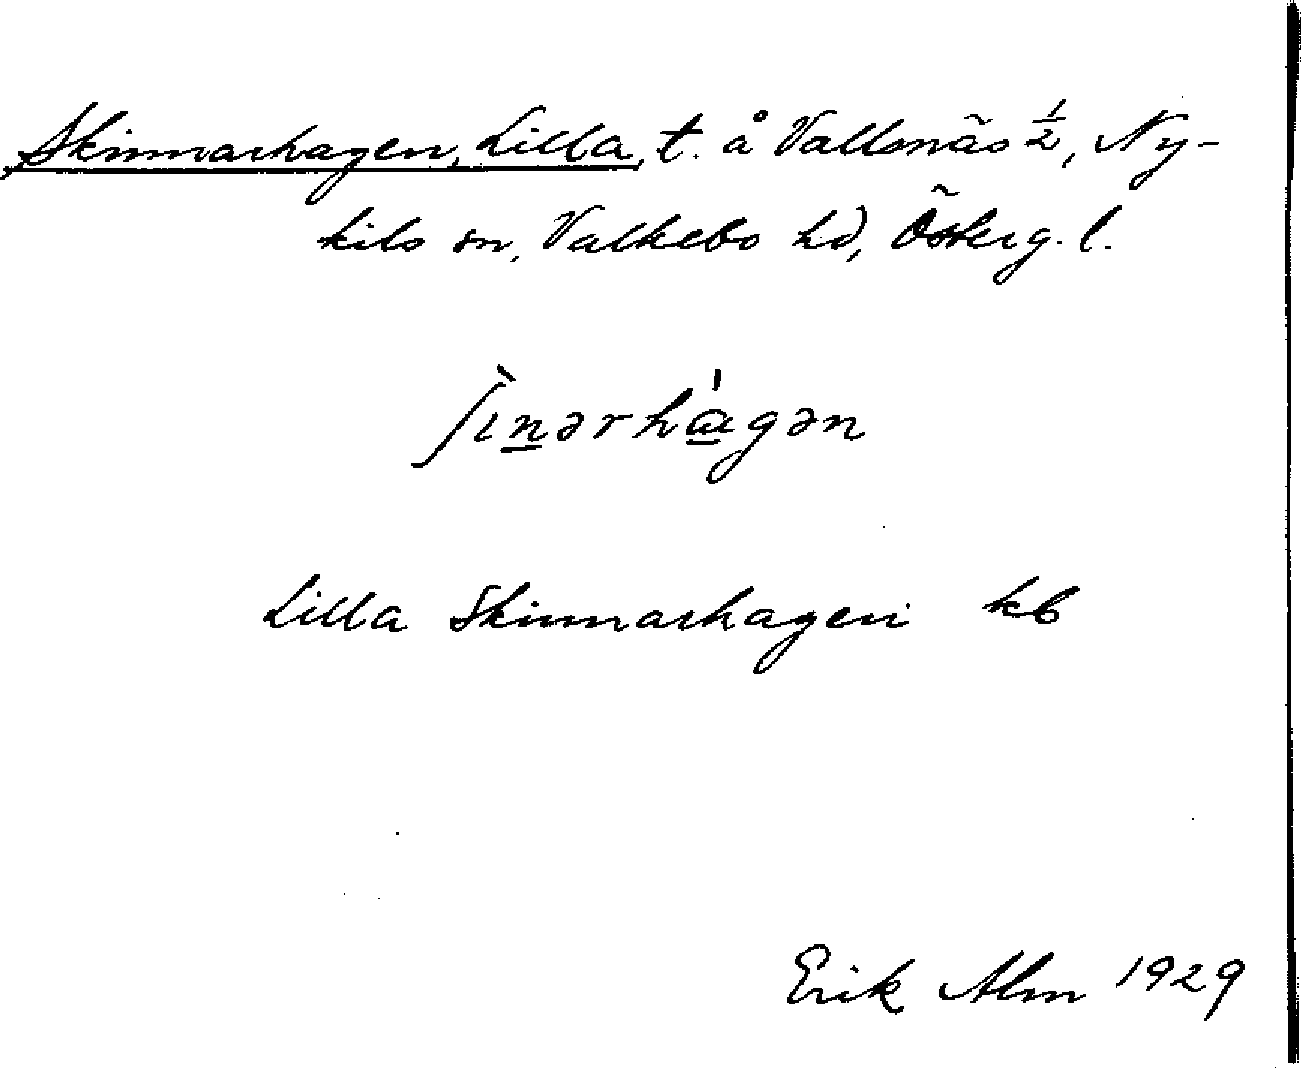 Skinnarhagen, Lilla, t. å Vallsnäs ½, Ny-
kils sn, Valkebo hd, Österg. l.
ʃ̀ɩn̲ərhá̲gən
Lilla Skinnarhagen kb
Erik Alm 1929